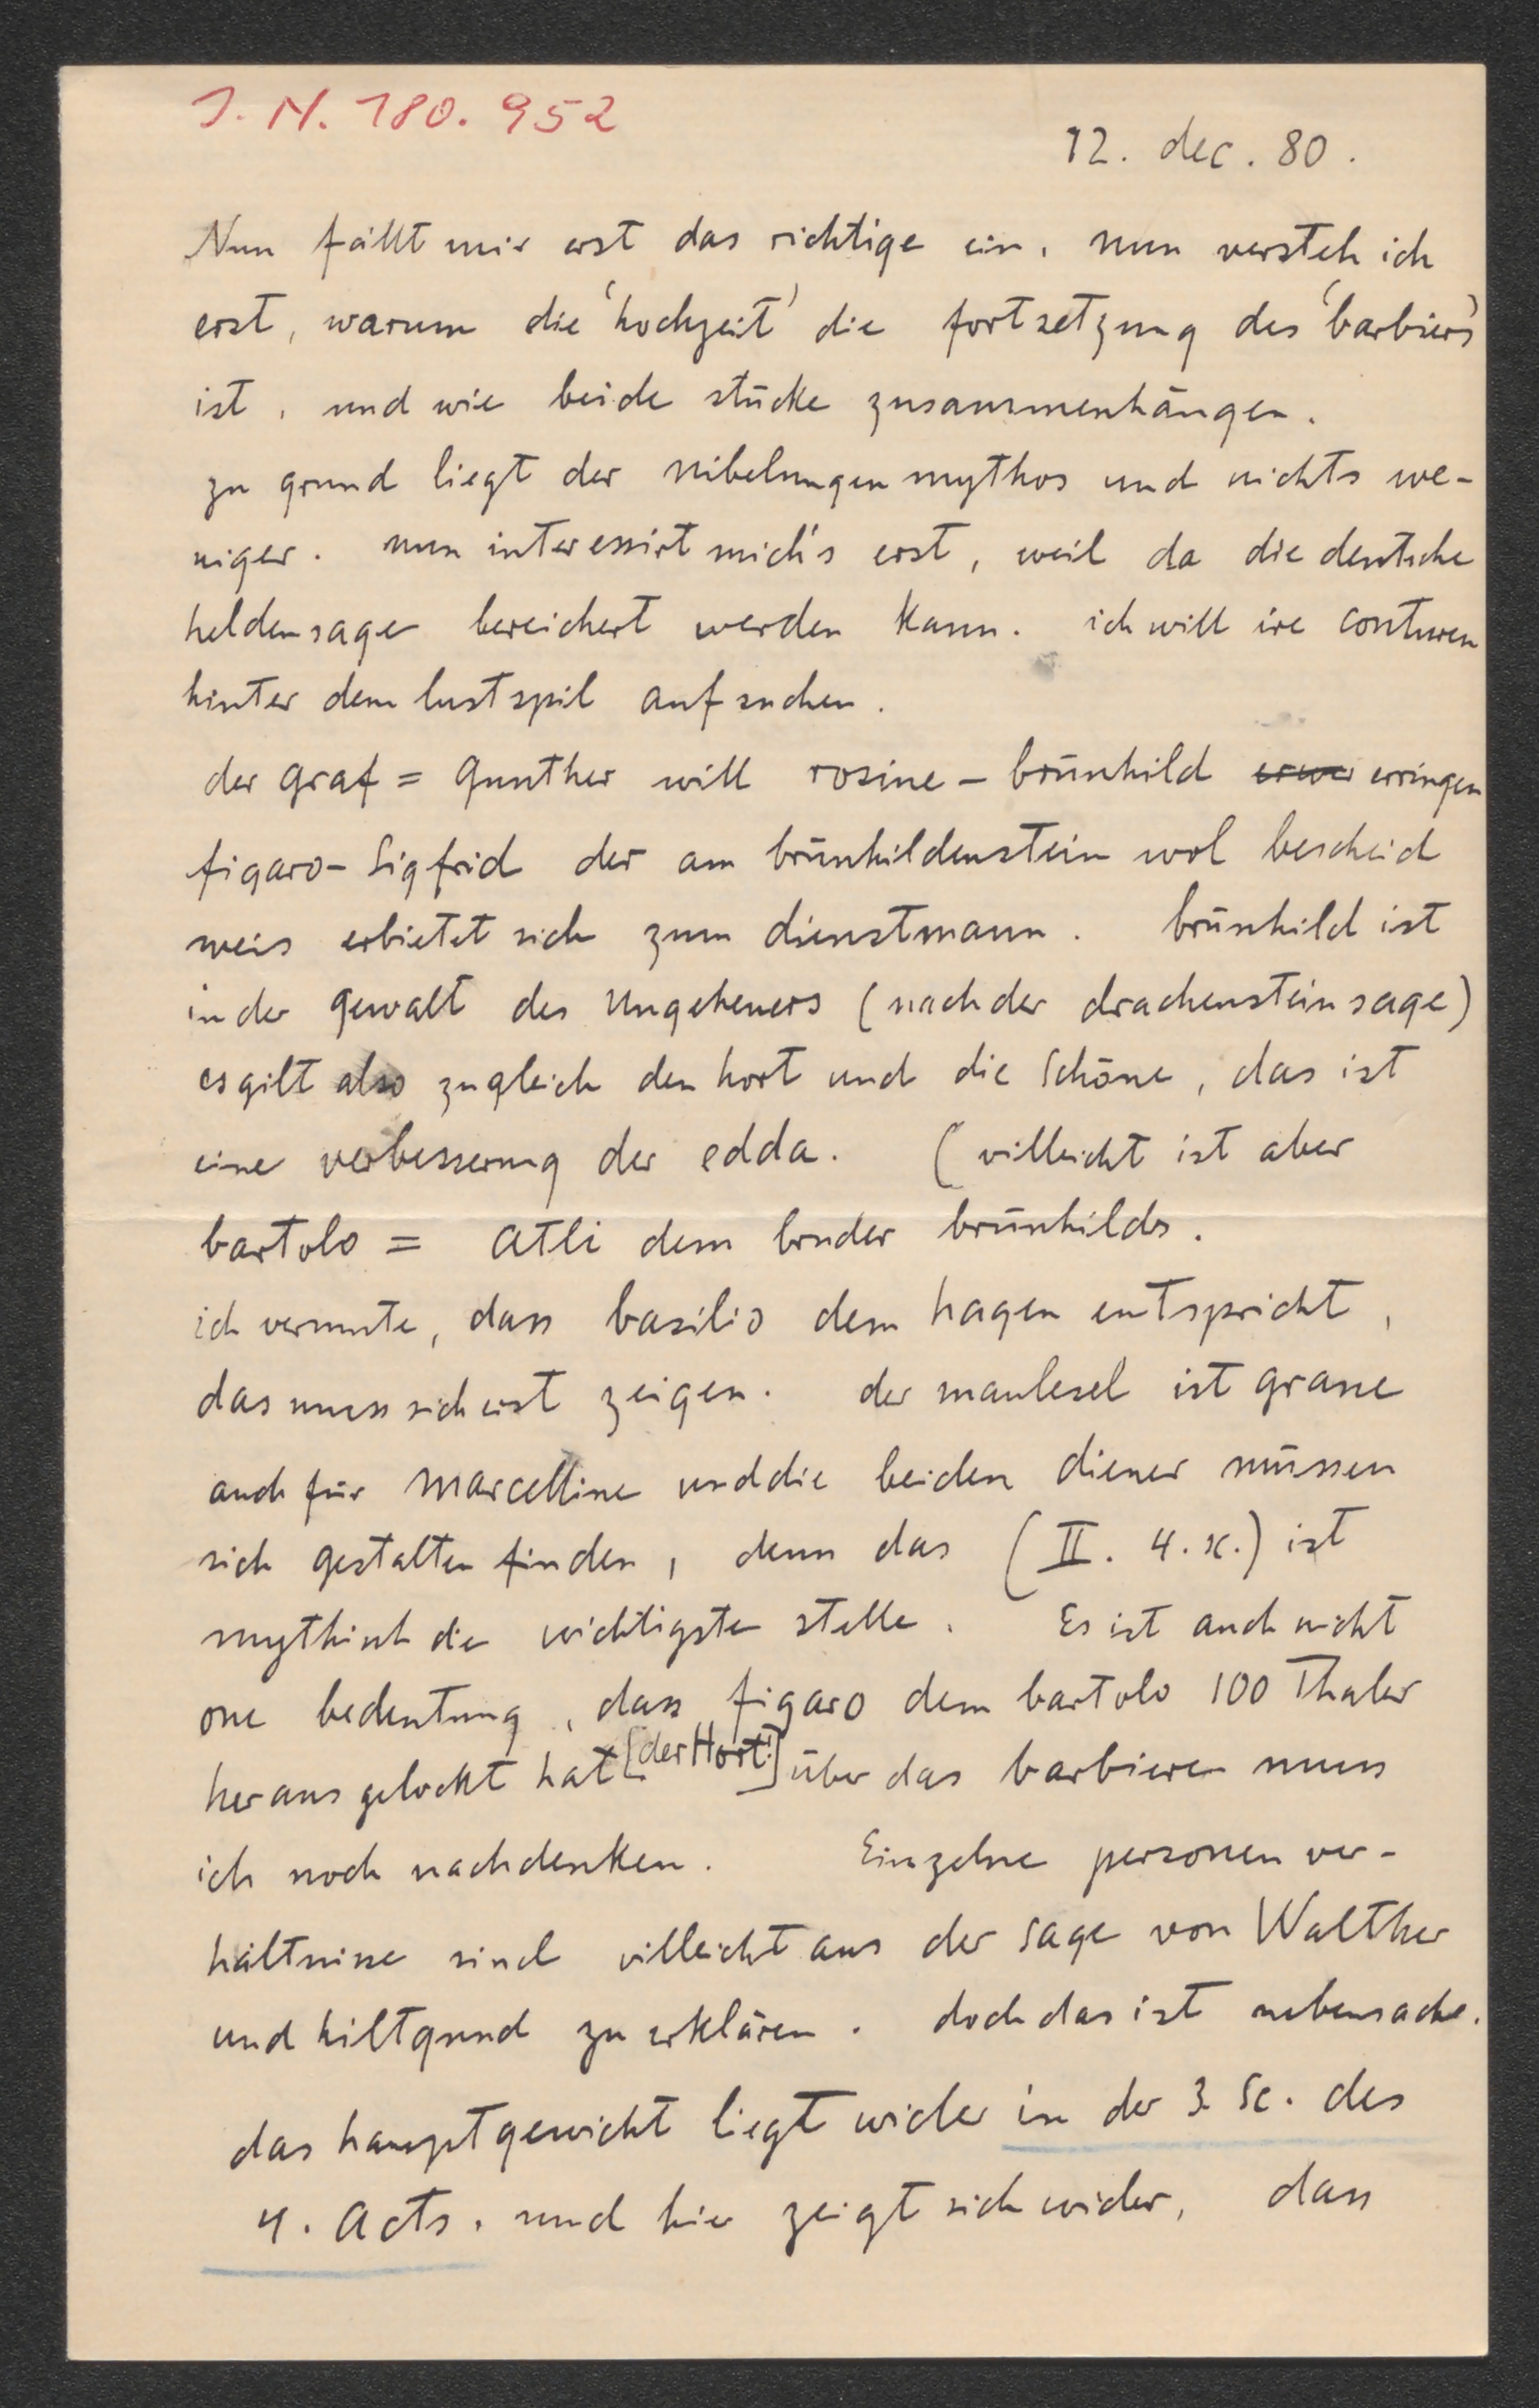 J. N. 180.952
12. dec. 80.
Nun fällt mir erst das richtige ein, nun versteh ich
erst, warum die 'hochzeit' die fortsetzung des 'barbiers'
ist, und wie beide stücke zusammenhängen.
zu grund liegt der Nibelungenmythos und nichts we-
niger. nun interessirt mich's erst, weil da die deutsche
heldensage bereichert werden kann. ich will ire conturen
hinter dem lustspil aufsuchen.
der graf = Gunther will rosine - brünhild erwer erringen
figaro - Sigfrid der am brünhildenstein wol bescheid
weis erbietet sich zum dienstmann. brünhild ist
in der gewalt des Ungeheuers (nach der drachenstein sage)
es gilt also zugleich den hort und die Schöne, das ist
eine verbesserung der edda. (villeicht ist aber
bartolo = Atli dem bruder brünhilds.
ich vermute, dass basilio dem hagen entspricht,
das muss sich erst zeigen. der maulesel ist grane
auch für Marcelline und die beiden diener müssen
sich gestalten finden, denn das (II. 4. sc.) ist
mythisch die wichtigste stelle. Es ist auch nicht
one bedeutung, dass figaro dem bartolo 100 Thaler
heraus gelockt hat [der Hort!] über das barbieren muss
ich noch nachdenken. Einzelne personen ver-
hältnisse sind villeicht aus der sage von Walther
und hiltgund zu erklären. doch das ist nebensache.
das hauptgewicht liegt wider in der 3 Sc. des
4. Acts. und hier zeigt sich wider, dass